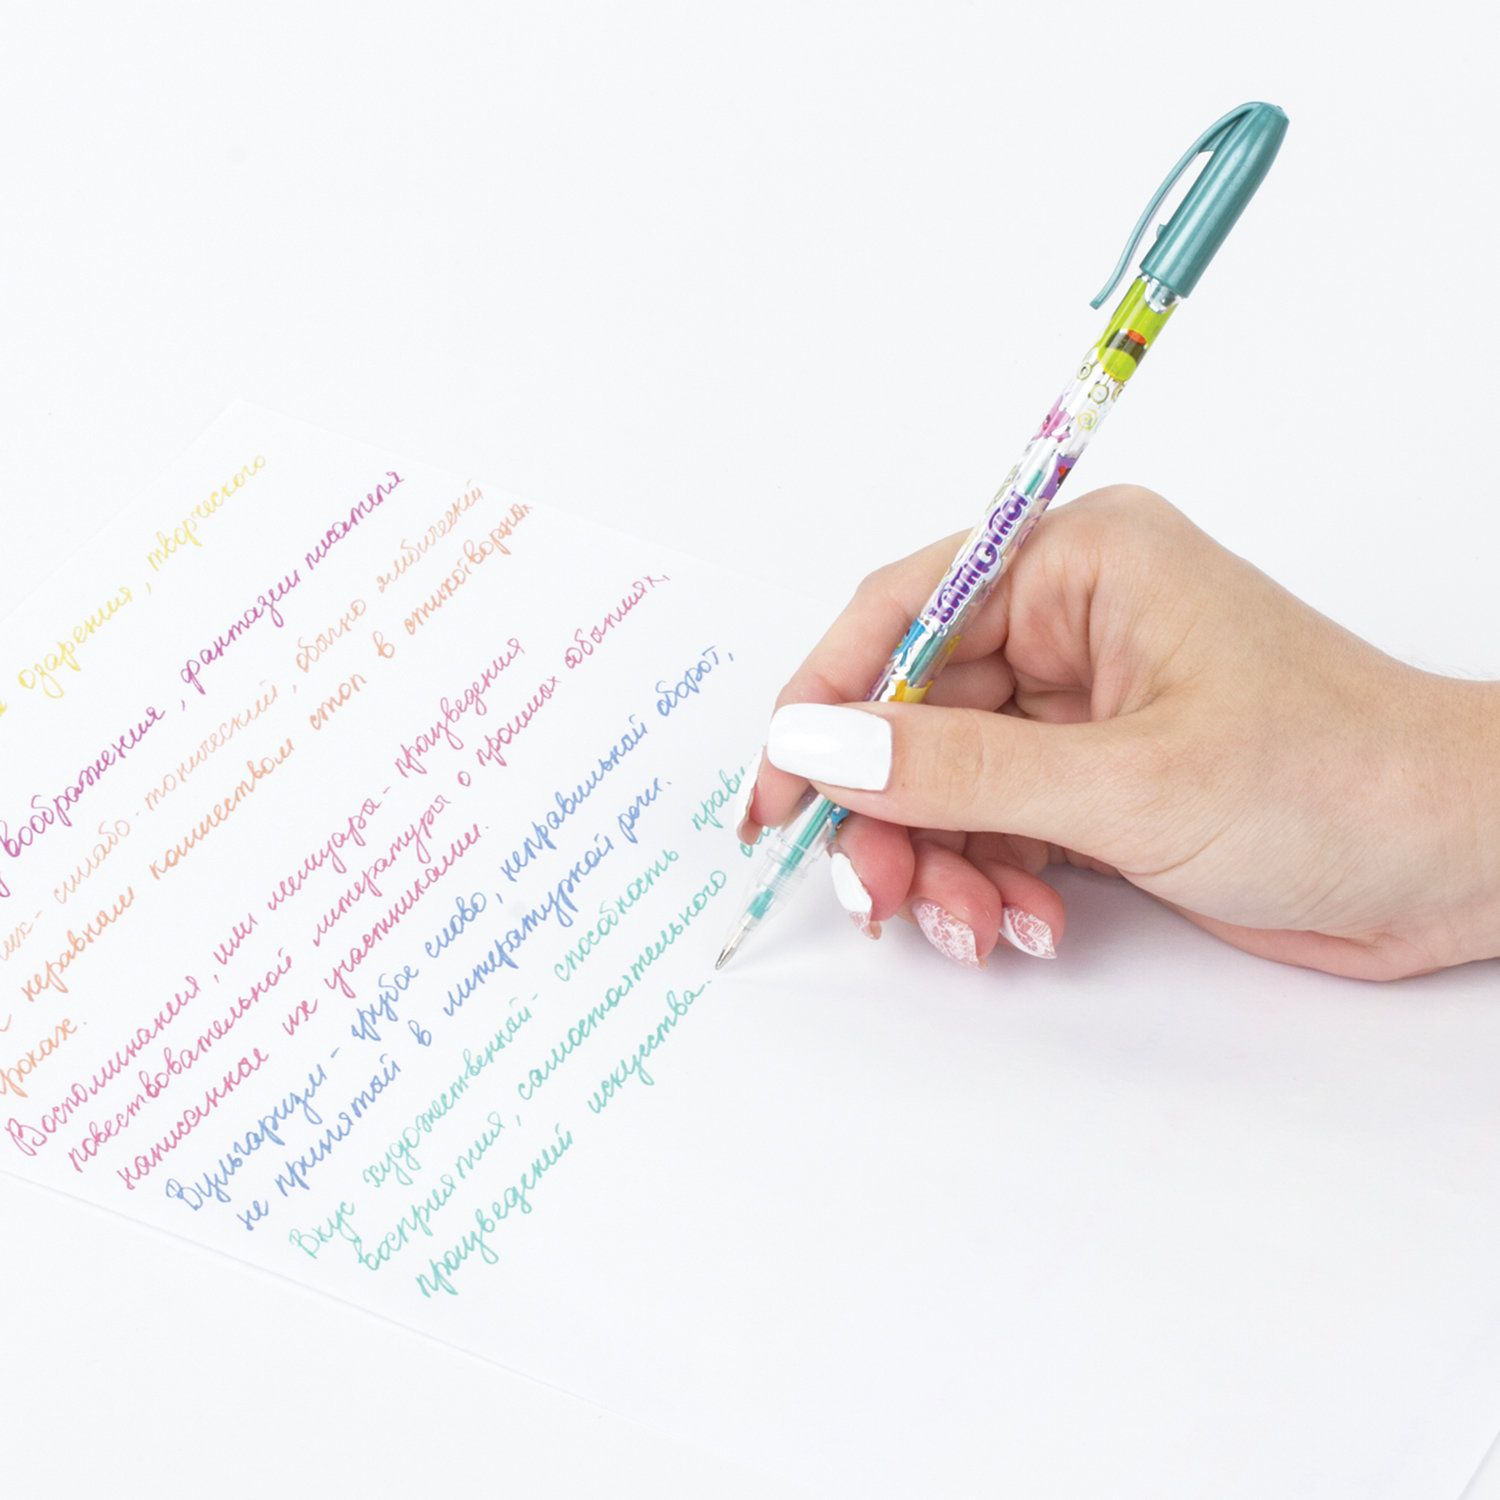 озарения, творческого
воображения, фантазии писателя
силлабо-тонический, обычно ямбический
с неравным количеством стоп в стихотворных
строках.
Воспоминания, или мемуары - произведения
повествовательной литературы о прошлых событиях,
написанные их участниками.
Вульгаризм - грубое слово, неправильный оборот,
не принятой в литературной речи.
Вкус художественный - способность
восприятия, самостоятельного
произведений искусства.